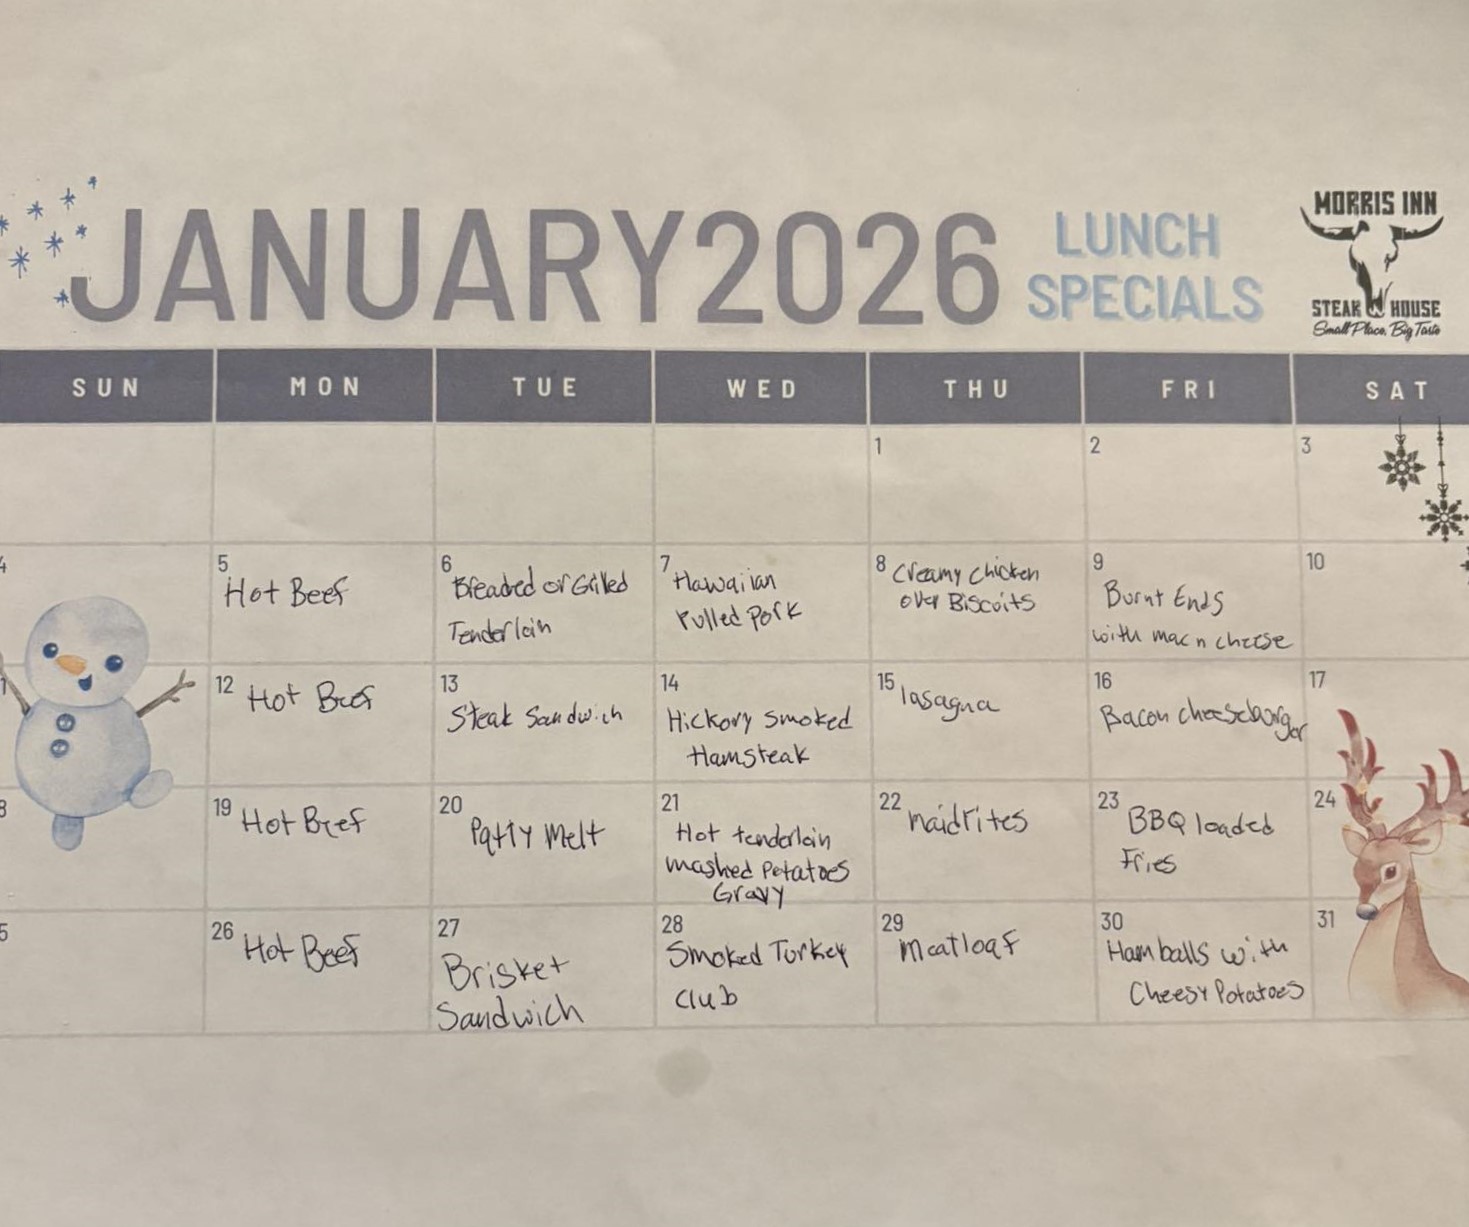 JANUARY 2026
LUNCH
SPECIALS
MORRIS INN
STEAK HOUSE
Small Place, Big Taste
SUN MON TUE WED THU FRI SAT
1 2 3
4 5 6 7 8 9 10
Hot Beef
Breaded or Grilled
Tenderloin
Hawaiian
Pulled Pork
Creamy Chicken
over Biscuits
Burnt Ends
with mac n cheese
1 12 13 14 15 16 17
Hot Beef
Steak Sandwich
Hickory Smoked
Hamsteak
lasagna
Bacon cheeseburger
8 19 20 21 22 23 24
Hot Beef
Patty Melt
Hot tenderloin
mashed Potatoes
Gravy
maidrites
BBQ loaded
Fries
5 26 27 28 29 30 31
Hot Beef
Brisket
Sandwich
Smoked Turkey
Club
meatloaf
Ham balls with
Cheesy Potatoes